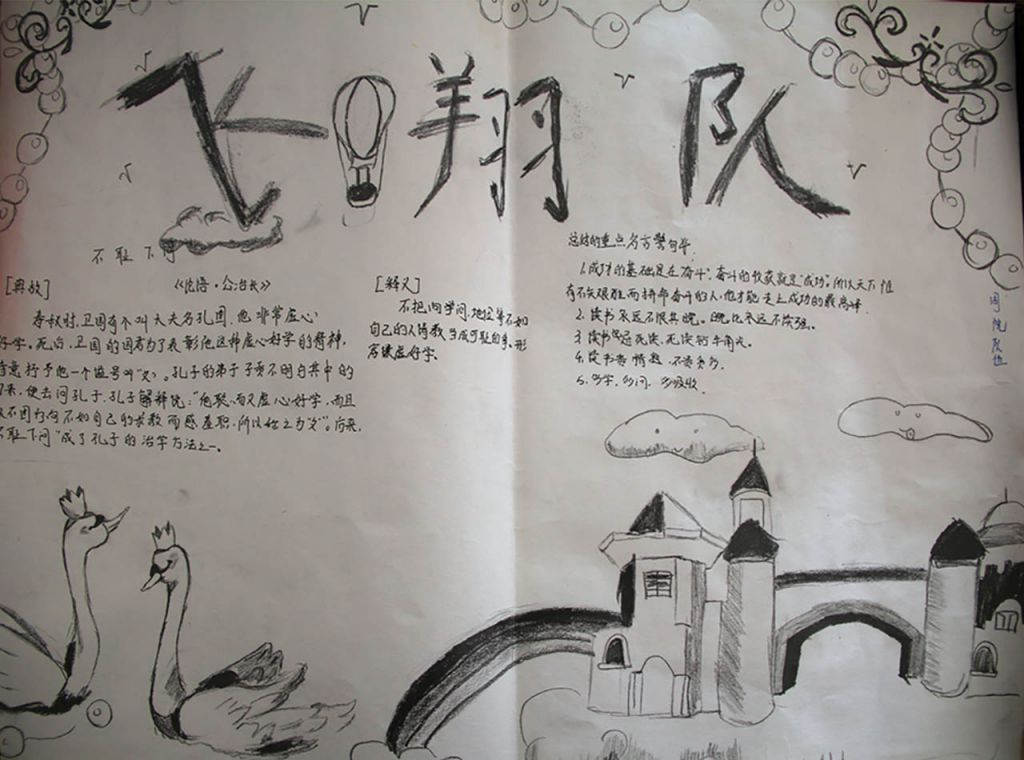 飞翔队
不耻下问
[典故] 《论语·公冶长》
春秋时,卫国有个叫大夫名孔圉,他非常虚心
好学。死后,卫国的国君为了表彰他这种虚心好学的精神,
特意授予他一个谥号叫"文"。孔子的弟子子贡不明白其中的
便去问孔子,孔子解释说:"他聪 而又虚心好学,而且
不因为向不如自己的求教而感羞耻,所以 之为文"。后来,
不耻下问"成了孔子的治学方法之一。
[释义]
不把向学问、地位等不如
自己的人请教当成可耻的事。形
容谦虚好学。
总结的重点名言警句
1.成才的基础是在"奋斗",奋斗的收获就是"成功",所以天下惟
有不畏艰难而拼命奋斗的人,也才能走上成功的最高峰.
2.读书永远不恨其晚。晚比永远不读强。
3.读书忌死读,死读钻牛角尖。
4.读书要 不要
5.多学,多问,多吸收.